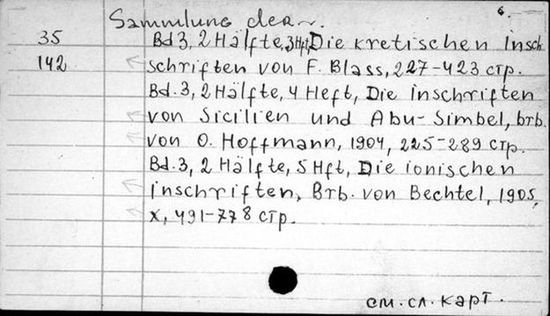 6.
Sammlung der ~.
35 Bd 3, 2 Hälfte, 3 Hft, Die kretischen Insch
142 schriften von F. Blass, 227-423 стр.
Bd. 3, 2 Hälfte, 4 Heft, Die inschriften
von Sicilien und Abu-Simbel, brb.
von O. Hoffmann, 1904, 225-289 стр.
Bd. 3, 2 Hälfte, 5 Hft, Die ionischen
inschriften, Brb. von Bechtel, 1905,
X, 491-778 стр.
см. сл. карт.